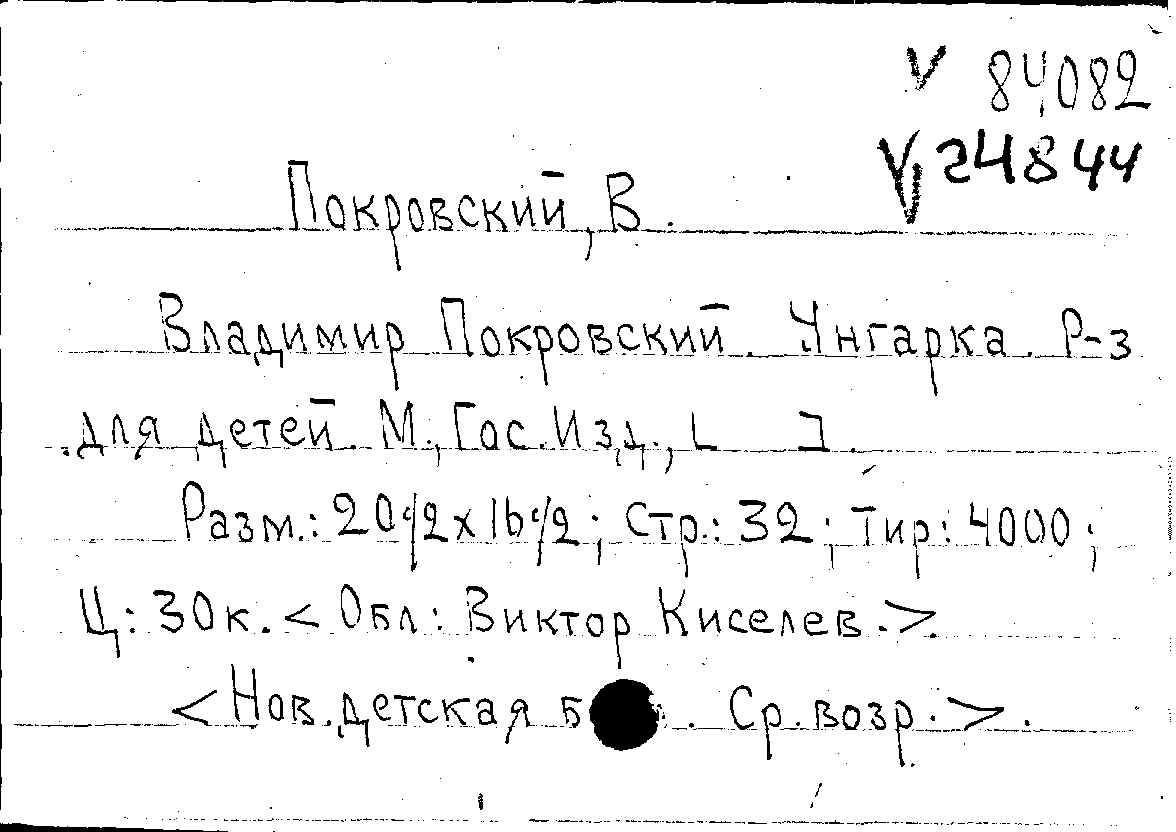 V 84082
V 24844
Покровский, В.
Владимир Покровский. Унгарка. Р-з
для детей. М., Гос. Изд., [ ].
Разм.: 20 1/2 x 16 1/2; Стр.: 32; Тир: 4000;
Ц: 30 к. < Обл: Виктор Киселев. >.
< Нов. детская . Ср. возр. >.